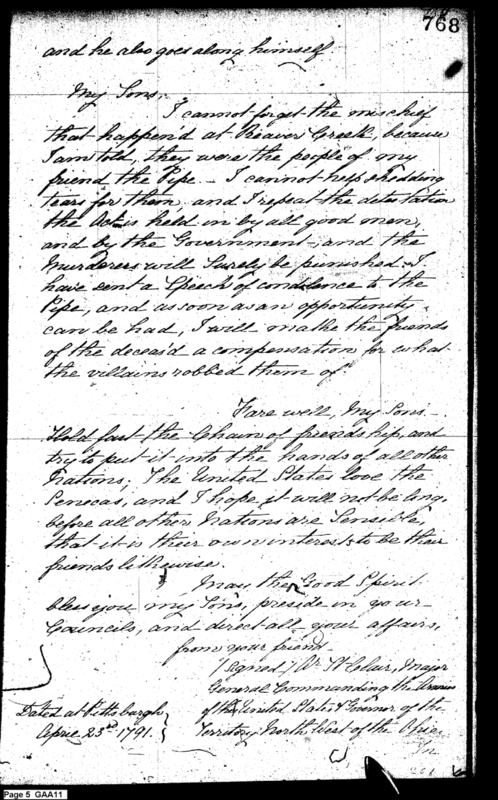 768
and he also goes along himself
My Sons,
I cannot forget the mischief
that happen'd at Beaver Creek, because
I am told, they were the people of my
friend the Pipe _ I cannot help shedding
tears for them, and I repeat the detestation
the Act is held in by all good men,
and by the Government _ and the
Murderers will Surely be punished. I
have sent a Speech of condolence to the
Pipe, and as soon as an opportunity
can be had, I will make the friends
of the deceas'd a compensation for what
the villains robbed them of.
Fare well, My Sons _
Hold fast the Chain of friendship, and
try to put it into the hands of all other
Nations; The United States love the
Senecas, and I hope it will not be long,
before all other Nations are Sensible,
that it is their own interest to be their
friends likewise.
May the Good Spirit
bless you my Sons, preside in your
Councils, and direct all your affairs,
from your friend
(signed) Ar. St. Clair, Major
General Commanding the Armies
of the United States & Governor of the
Territory North West of the Ohio
Dated at Pittsburgh
April 23rd 1791.
Page 5 GAA11